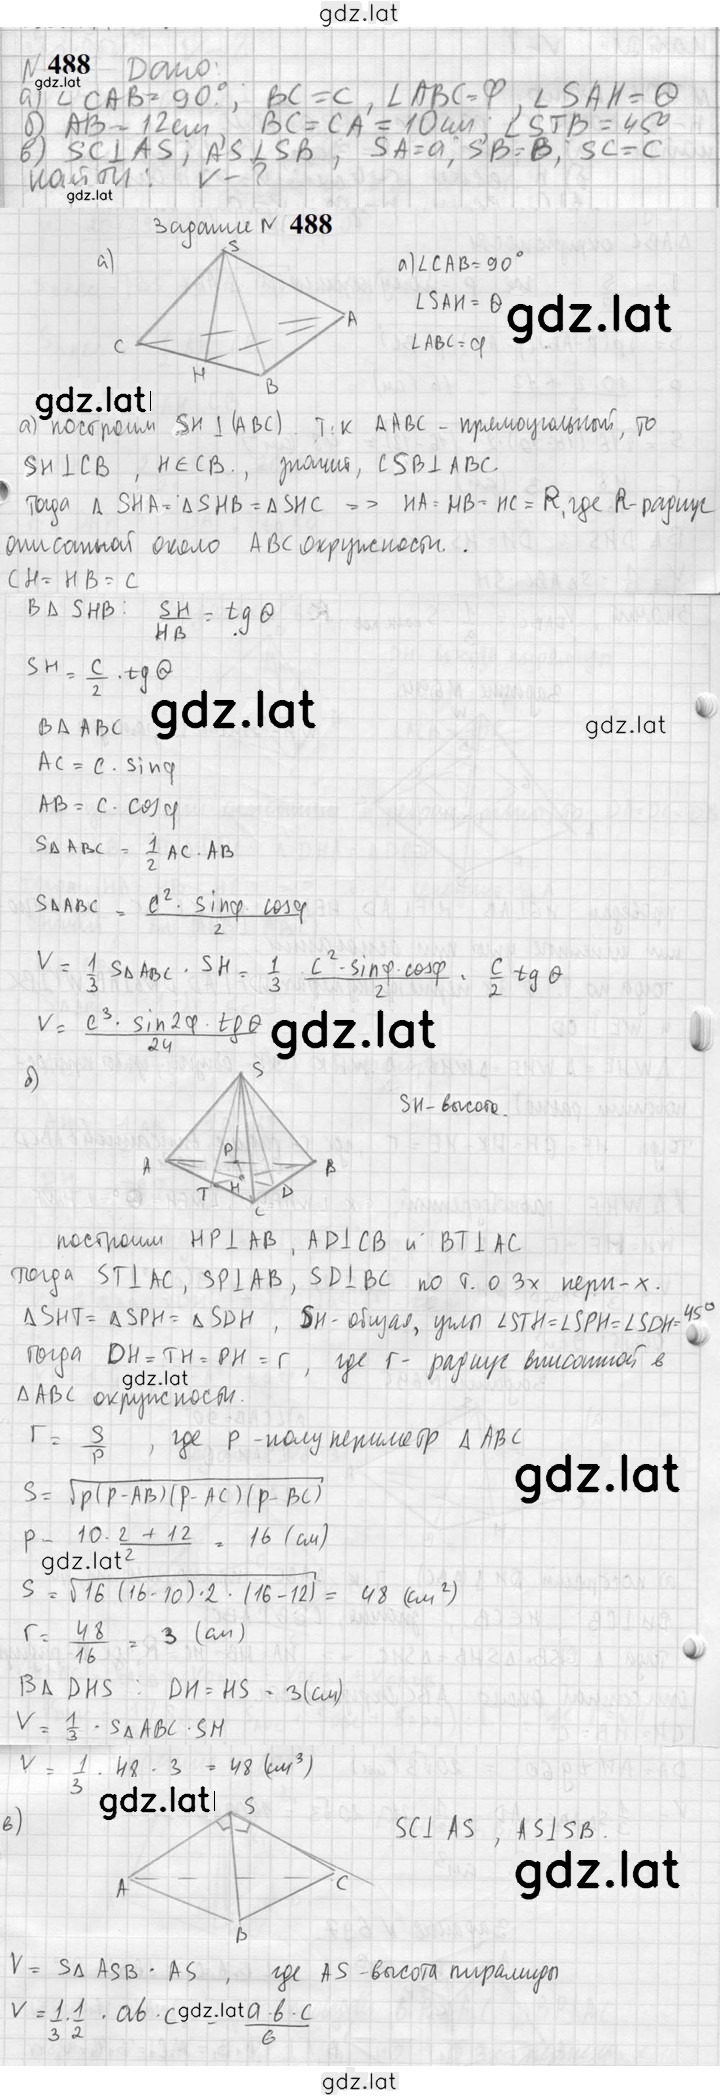 gdz.lat
N 488 Дано:
gdz.lat
а) ∠CAB = 90°, BC = C, ∠ABC = φ, ∠SAH = θ
б) AB - 12см, BC = CA = 10см; ∠STB = 45°
в) SC⊥AS; AS⊥SB, SA = a; SB = B; SC = C
найти: V - ?
gdz.lat
Задание N 488
а)
S
A
C
H
B
а) ∠CAB = 90°
∠SAH = θ
gdz.lat
∠ABC = φ
gdz.lat
а) построим SH⊥(ABC). Т.к ΔABC - прямоугольный, то
SH⊥CB, H∈CB., значит, CSB⊥ABC.
тогда Δ SHA = ΔSHB = ΔSHC => HA = HB = HC = R, где R - радиус
описанной около ABC окружности.
CH = HB = C
В Δ SHB: SH/HB = tg θ
SH = C/2 · tg θ
gdz.lat
gdz.lat
В Δ ABC
AC = C · sinφ
AB = C · cosφ
SΔABC = 1/2 AC · AB
SΔABC = C² · sinφ · cosφ / 2
V = 1/3 SΔABC · SH = 1/3 · C² · sinφ · cosφ / 2 · C/2 tg θ
V = C³ · sin2φ · tgθ / 24
gdz.lat
б)
S
A
P
B
T
H
D
C
SH - высота.
построим HP⊥AB, AD⊥CB и BT⊥AC
тогда ST⊥AC, SP⊥AB, SD⊥BC по т. о 3х перп-х.
ΔSHT = ΔSPH = ΔSDH, SH - общая, углы ∠STH = ∠SPH = ∠SDH = 45°
тогда DH = TH = PH = r, где r - радиус вписанной в
gdz.lat
ΔABC окружности.
r = S/P, где p - полупериметр ΔABC
gdz.lat
S = √p(p-AB)(p-AC)(p-BC)
p - 10·2 + 12 / 2 = 16 (см)
gdz.lat
S = √16 (16-10)·2 · (16-12) = 48 (см²)
r = 48/16 = 3 (см)
В Δ DHS: DH = HS - 3(см)
V = 1/3 · SΔABC · SH
V = 1/3 · 48 · 3 = 48 (см³)
gdz.lat
в)
S
A
C
B
SC⊥AS, AS⊥SB.
gdz.lat
V = SΔASB · AS, где AS - высота пирамиды
V = 1/3 · 1/2 · ab · c = a·b·c / 6
gdz.lat
gdz.lat